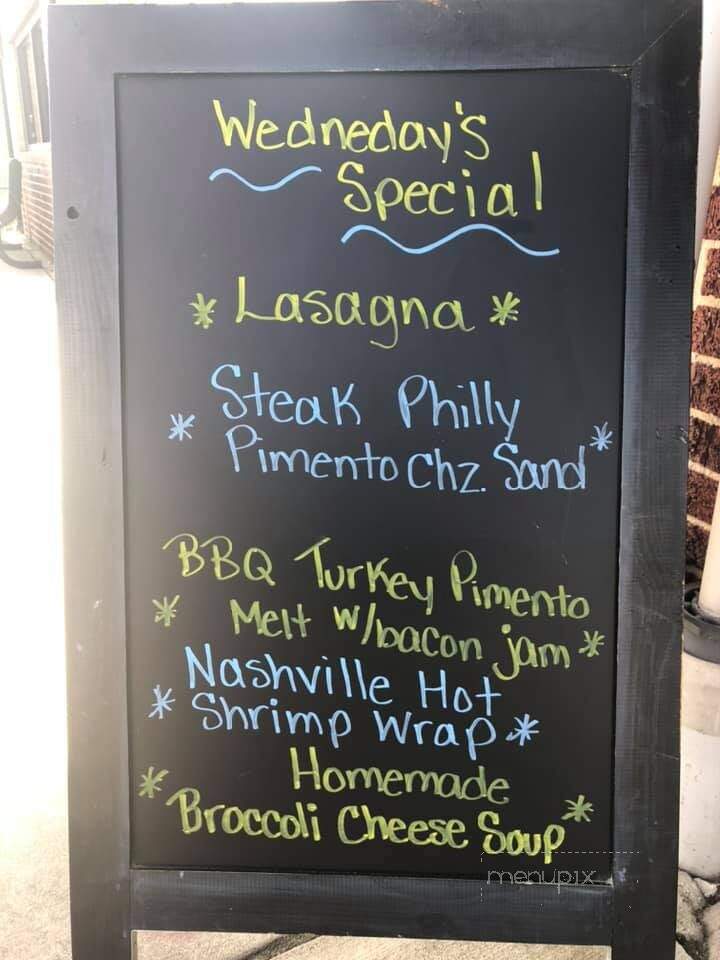 Wedneday's
Special
* Lasagna *
Steak Philly
* Pimento Chz. Sand *
BBQ Turkey Pimento
* Melt w/bacon jam *
Nashville Hot
* Shrimp Wrap *
Homemade
* Broccoli Cheese Soup *
menupix